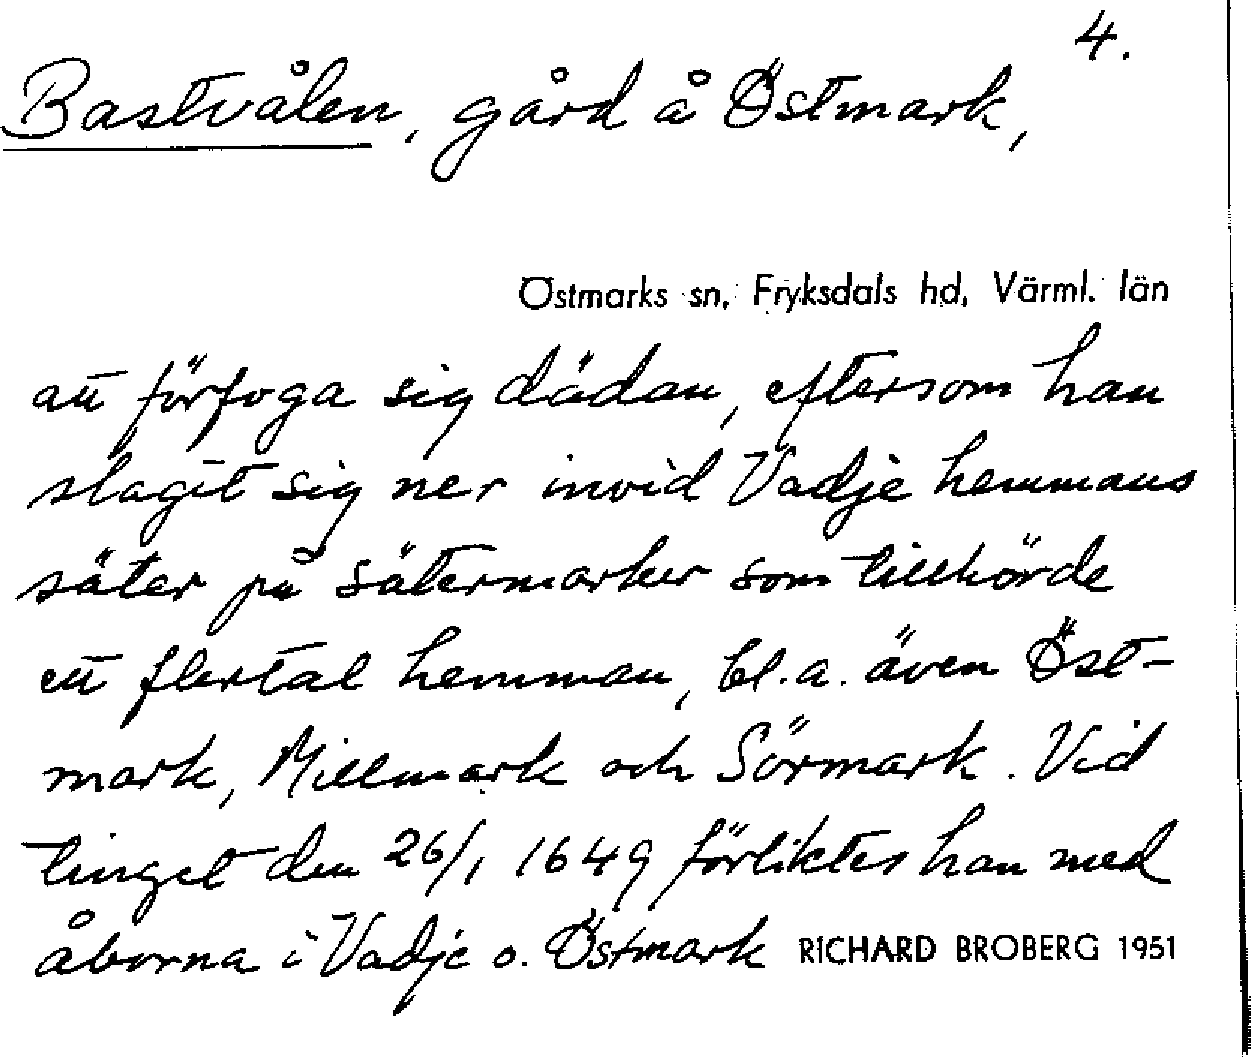 4.
Bastvålen, gård å Östmark,
Östmarks sn, Fryksdals hd, Värml. län
att förfoga sig dädan, eftersom han
slagit sig ner invid Vadje hemmans
säter på sätermarker som tillhörde
ett flertal hemman, bl.a. även Öst-
mark, Millmark och Sörmark. Vid
tinget den 26/1 1649 förliktes han med
åborna i Vadje o. Östmark
RICHARD BROBERG 1951